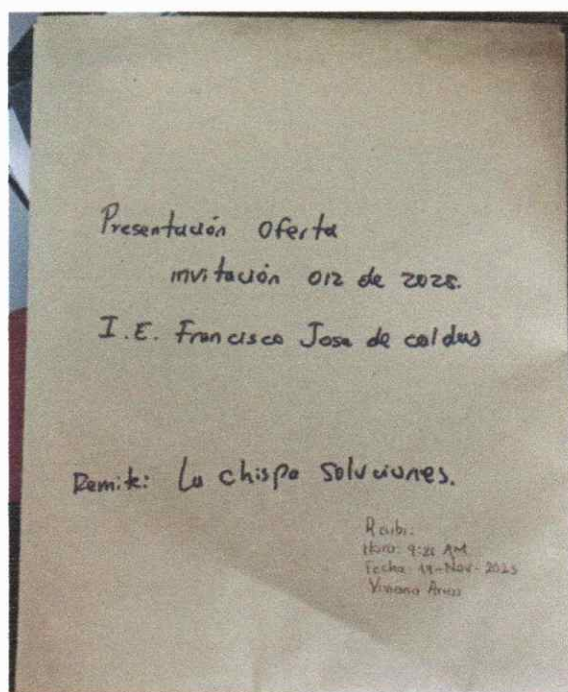 Presentación Oferta
invitación 012 de 2025.
I.E. Francisco Jose de caldas
Remite: La chispa soluciones.
Recibi:
Hora: 9:21 AM
Fecha: 19-Nov-2025
Viviana Arias